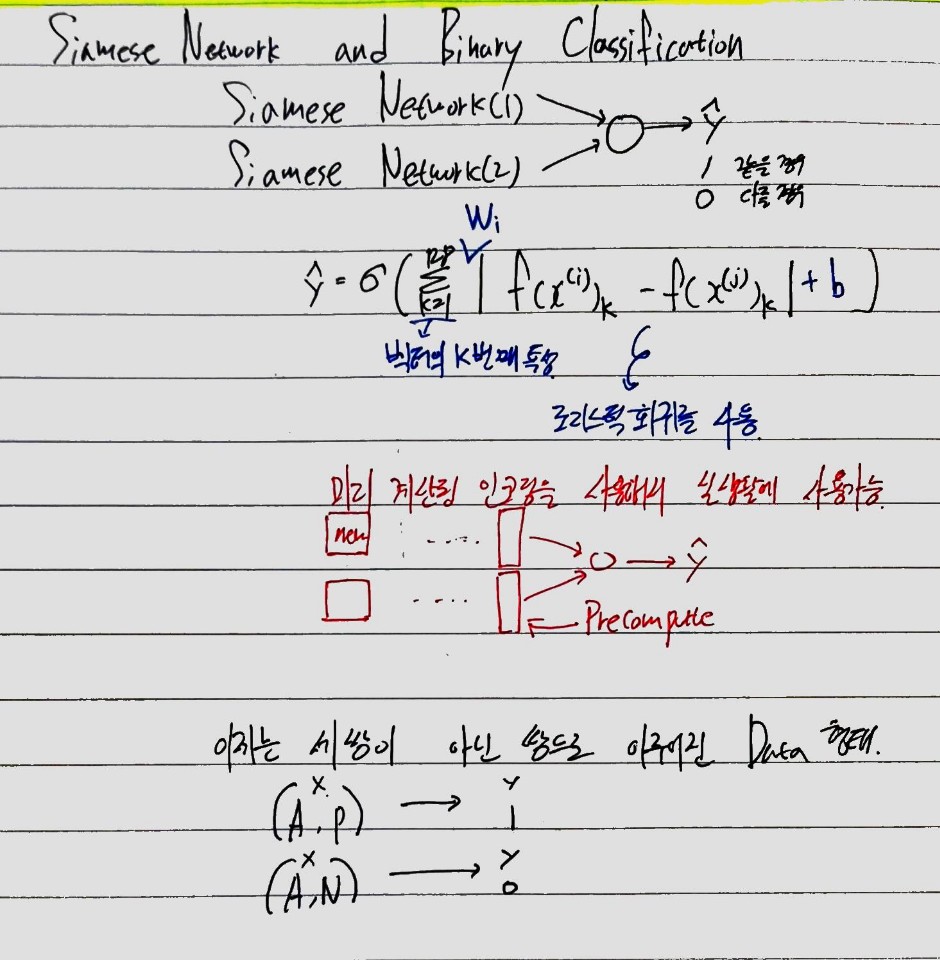 Siamese Network and Binary Classification
Siamese Network(1)
ŷ
Siamese Network(2)
1 같은 경우
0 다를 경우
Wi
ŷ = σ ( Σ k=1 128 | f(x⁽ⁱ⁾)k - f(x⁽ʲ⁾)k | + b )
벡터의 K번째 특성
로지스틱 회귀를 사용
미리 계산된 인코딩을 사용해서 실생활에 사용가능
new ..... ŷ
.....
Precompute
이제는 세쌍이 아닌 쌍으로 이루어진 Data 형태.
X Y
(A, P) → 1
X Y
(A, N) → 0